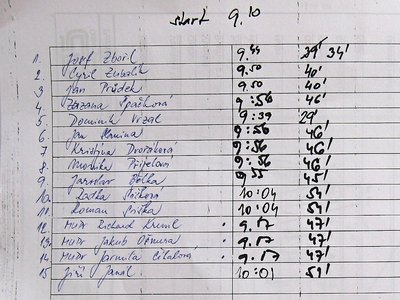 start 9.10
1. Josef Zbořil 9.44 39' 34'
2. Cyril Zubalík 9.50 40'
3 Jan Průdek 9.50 40'
4. Zuzana Špačková 9:56 46'
5. Dominik Vrzal 9:39 29'
6 Jan Slanina 9:56 46'
7 Kristina Dvořáková 9:56 46'
8 Monika 9:56 46'
9. Jaroslav 9:55 45'
10. Radka 10:04 54'
11. Roman 10:04 54'
12 MUDr Richard 9.57 47'
13. MUDr Jakub 9.57 47'
14 MUDr Jarmila 9.57 47'
15 Jiří 10:01 51'